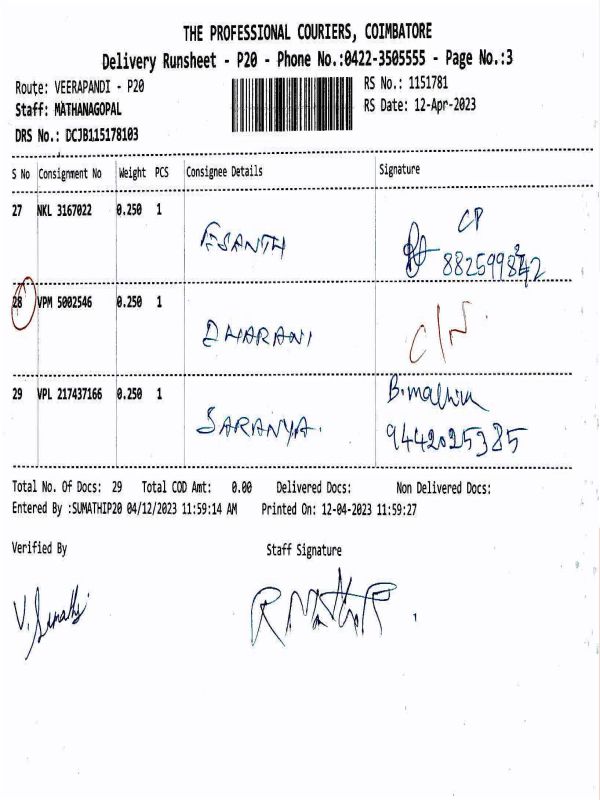 THE PROFESSIONAL COURIERS, COIMBATORE
Delivery Runsheet - P20 - Phone No.:0422-3505555 - Page No.:3
Route: VEERAPANDI - P20 RS No.: 1151781
Staff: MATHANAGOPAL RS Date: 12-Apr-2023
DRS No.: DCJB115178103
S No Consignment No Weight PCS Consignee Details Signature
27 NKL 3167022 0.250 1
CP
28 VPM 5002546 0.250 1
DHARANI C/N.
29 VPL 217437166 0.250 1
SARANYA. 9442025385
Total No. Of Docs: 29 Total COD Amt: 0.00 Delivered Docs: Non Delivered Docs:
Entered By :SUMATHIP20 04/12/2023 11:59:14 AM Printed On: 12-04-2023 11:59:27
Verified By Staff Signature